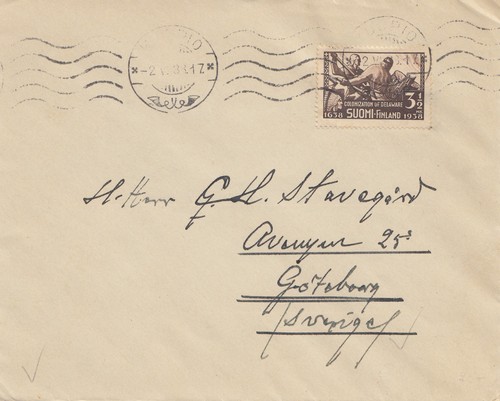 COLONIZATION OF DELAWARE
1638 SUOMI-FINLAND 1938
3 1/2
G. H. Stavegård
Avenyen 25
Göteborg
Sverige